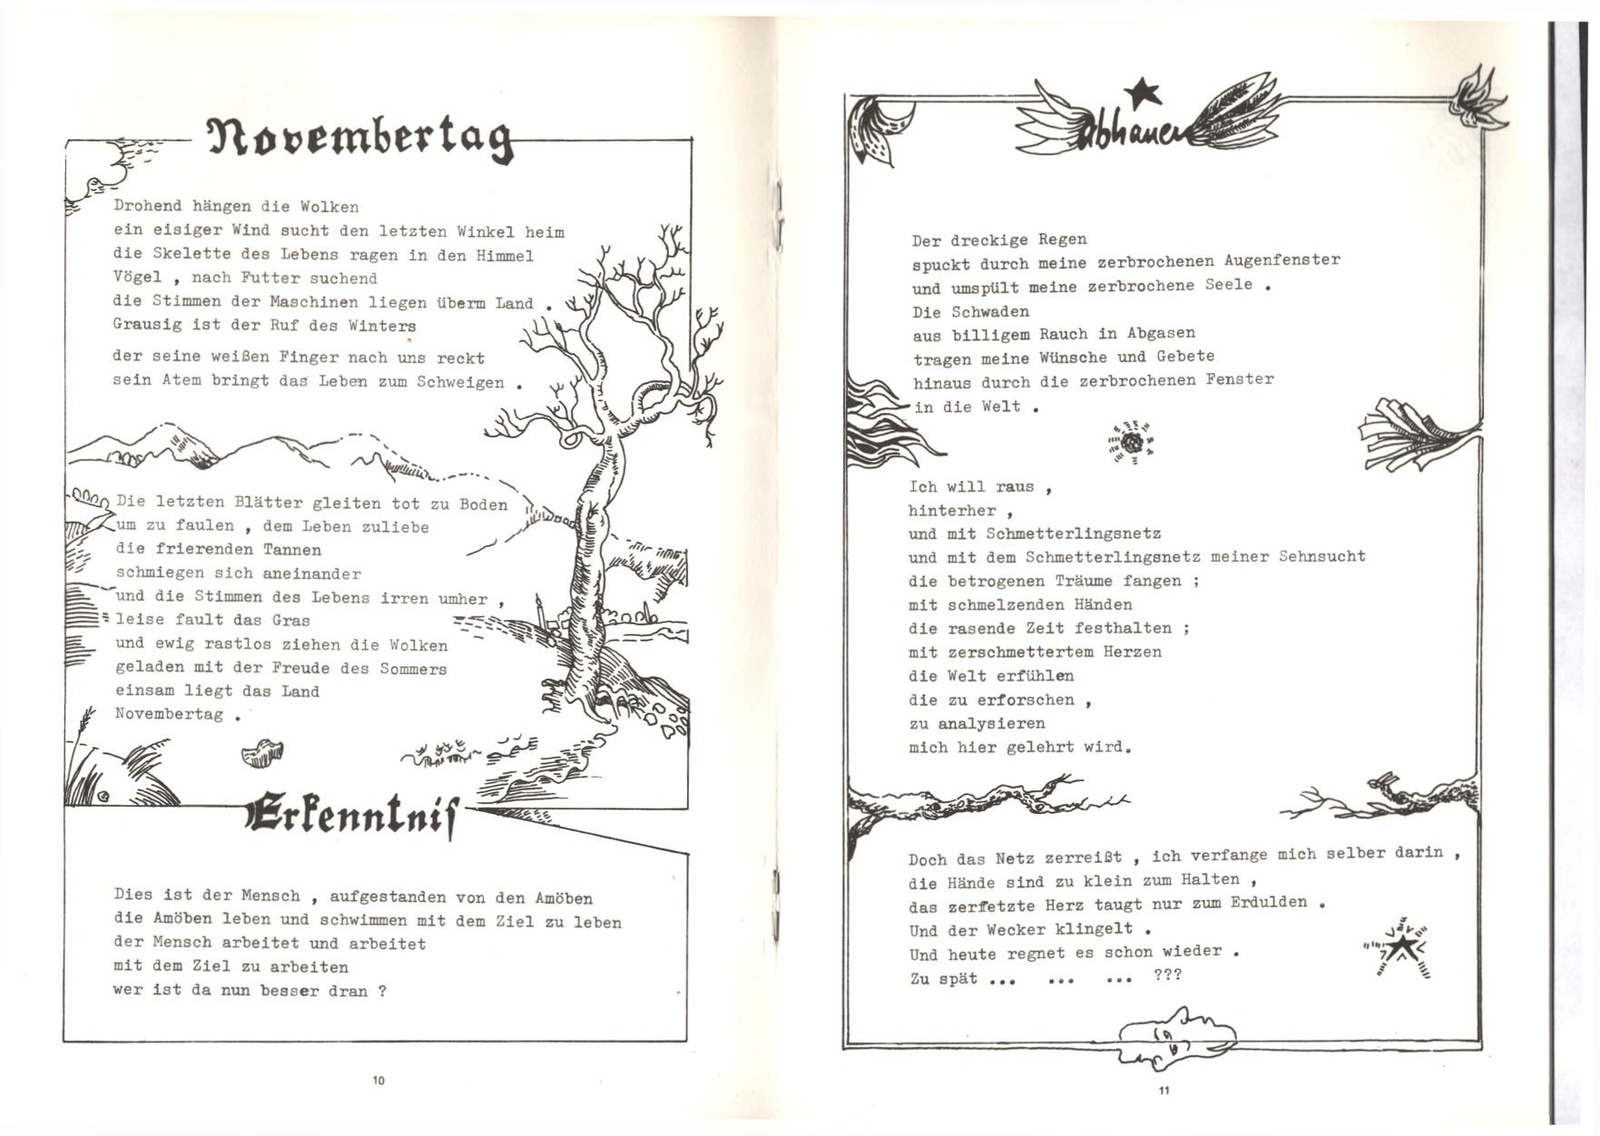 Novembertag
Drohend hängen die Wolken
ein eisiger Wind sucht den letzten Winkel heim
die Skelette des Lebens ragen in den Himmel
Vögel , nach Futter suchend
die Stimmen der Maschinen liegen überm Land .
Grausig ist der Ruf des Winters
der seine weißen Finger nach uns reckt
sein Atem bringt das Leben zum Schweigen .
Die letzten Blätter gleiten tot zu Boden
um zu faulen , dem Leben zuliebe
die frierenden Tannen
schmiegen sich aneinander
und die Stimmen des Lebens irren umher ,
leise fault das Gras
und ewig rastlos ziehen die Wolken
geladen mit der Freude des Sommers
einsam liegt das Land
Novembertag .
Erkenntnis
Dies ist der Mensch , aufgestanden von den Amöben
die Amöben leben und schwimmen mit dem Ziel zu leben
der Mensch arbeitet und arbeitet
mit dem Ziel zu arbeiten
wer ist da nun besser dran ?
10
abhauen
Der dreckige Regen
spuckt durch meine zerbrochenen Augenfenster
und umspült meine zerbrochene Seele .
Die Schwaden
aus billigem Rauch in Abgasen
tragen meine Wünsche und Gebete
hinaus durch die zerbrochenen Fenster
in die Welt .
Ich will raus ,
hinterher ,
und mit Schmetterlingsnetz
und mit dem Schmetterlingsnetz meiner Sehnsucht
die betrogenen Träume fangen ;
mit schmelzenden Händen
die rasende Zeit festhalten ;
mit zerschmettertem Herzen
die Welt erfühlen
die zu erforschen ,
zu analysieren
mich hier gelehrt wird.
Doch das Netz zerreißt , ich verfange mich selber darin ,
die Hände sind zu klein zum Halten ,
das zerfetzte Herz taugt nur zum Erdulden .
Und der Wecker klingelt .
Und heute regnet es schon wieder .
Zu spät ... ... ... ???
11